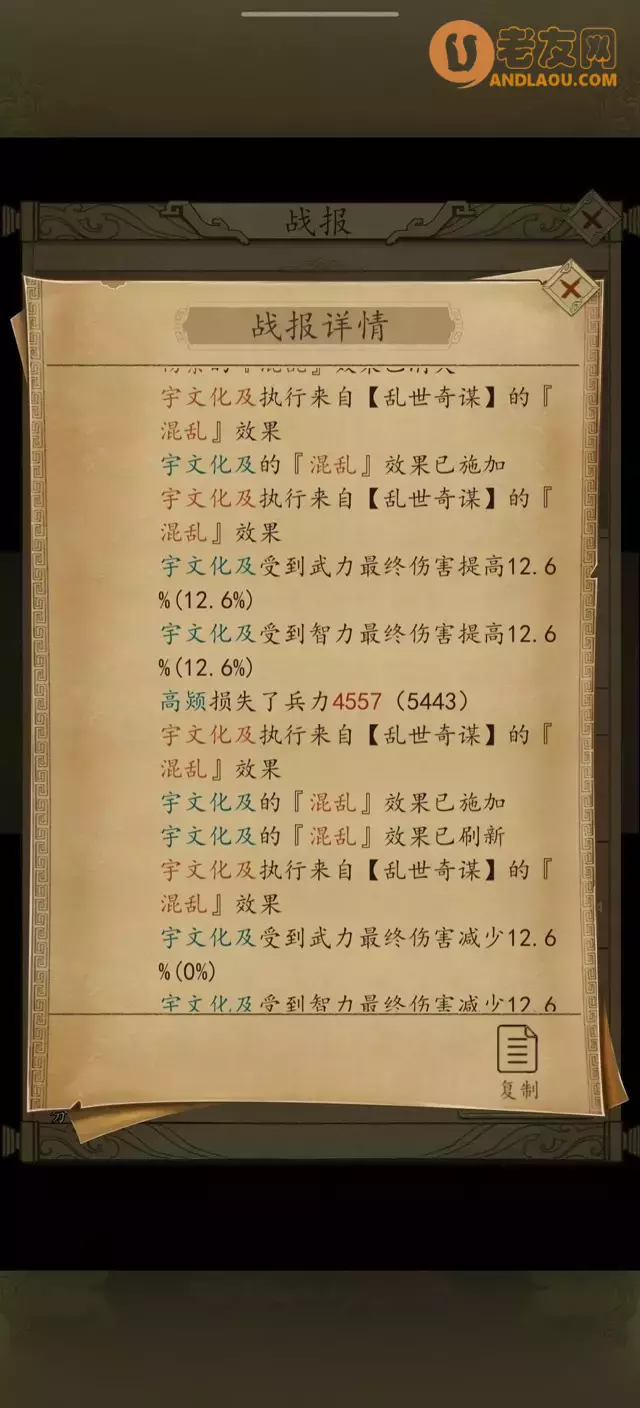 老友网
ANDLAOU.COM
战报
战报详情
宇文化及执行来自【乱世奇谋】的『
混乱』效果
宇文化及的『混乱』效果已施加
宇文化及执行来自【乱世奇谋】的『
混乱』效果
宇文化及受到武力最终伤害提高12.6
%(12.6%)
宇文化及受到智力最终伤害提高12.6
%(12.6%)
高颎损失了兵力4557（5443）
宇文化及执行来自【乱世奇谋】的『
混乱』效果
宇文化及的『混乱』效果已施加
宇文化及的『混乱』效果已刷新
宇文化及执行来自【乱世奇谋】的『
混乱』效果
宇文化及受到武力最终伤害减少12.6
%(0%)
宇文化及受到智力最终伤害减少12.6
复制